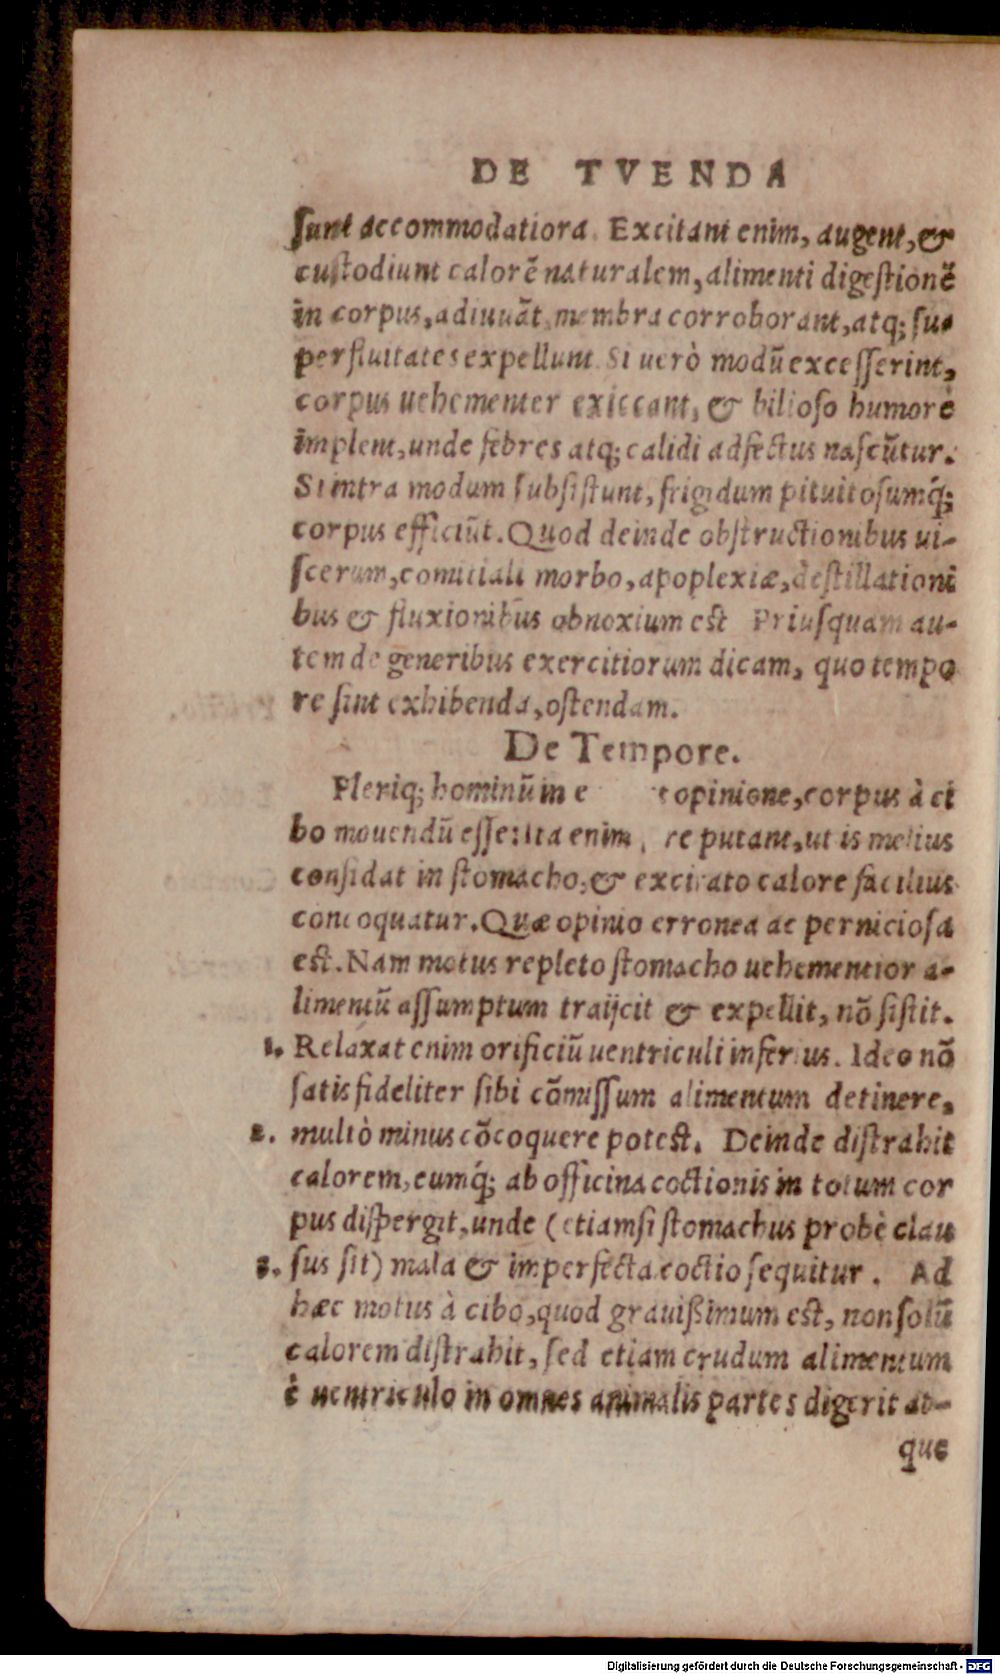 DE TVENDA
sunt accommodatiora. Excitant enim, augent, &
custodiunt calorē naturalem, alimenti digestionē
in corpus, adiuuāt, membra corroborant, atq; su-
perfluitates expellunt. Si uerò modū excesserint,
corpus uehementer exiccant, & bilioso humore
implent, unde febres atq; calidi adfectus nascūtur.
Si intra modum subsistunt, frigidum pituitosumq́;
corpus efficiūt. Quod deinde obstructionibus ui-
scerum, comitiali morbo, apoplexiæ, destillationi
bus & fluxionibus obnoxium est Priusquam au-
tem de generibus exercitiorum dicam, quo tempo
re sint exhibenda, ostendam.
De Tempore.
Pleriq; hominū in e opinione, corpus à ci
bo mouendū esse: ita enim re putant, ut is melius
consideat in stomacho, & excitato calore facilius
concoquatur. Quæ opinio erronea ac perniciosa
est. Nam motus repleto stomacho uehementior a-
limentū assumptum traijcit & expellit, nō sistit.
1. Relaxat enim orificiū uentriculi inferius. Ideo nō
satis fideliter sibi cōmissum alimentum detinere,
2. multò minus cōcoquere potest. Deinde distrahit
calorem, eumq́; ab officina coctionis in totum cor
pus dispergit, unde (etiamsi stomachus probè clau
3. sus sit) mala & imperfecta coctio sequitur. Ad
hæc motus à cibo, quod grauißimum est, non solū
calorem distrahit, sed etiam crudum alimentum
è uentriculo in omnes animalis partes digerit at-
que
Digitalisierung gefördert durch die Deutsche Forschungsgemeinschaft - DFG